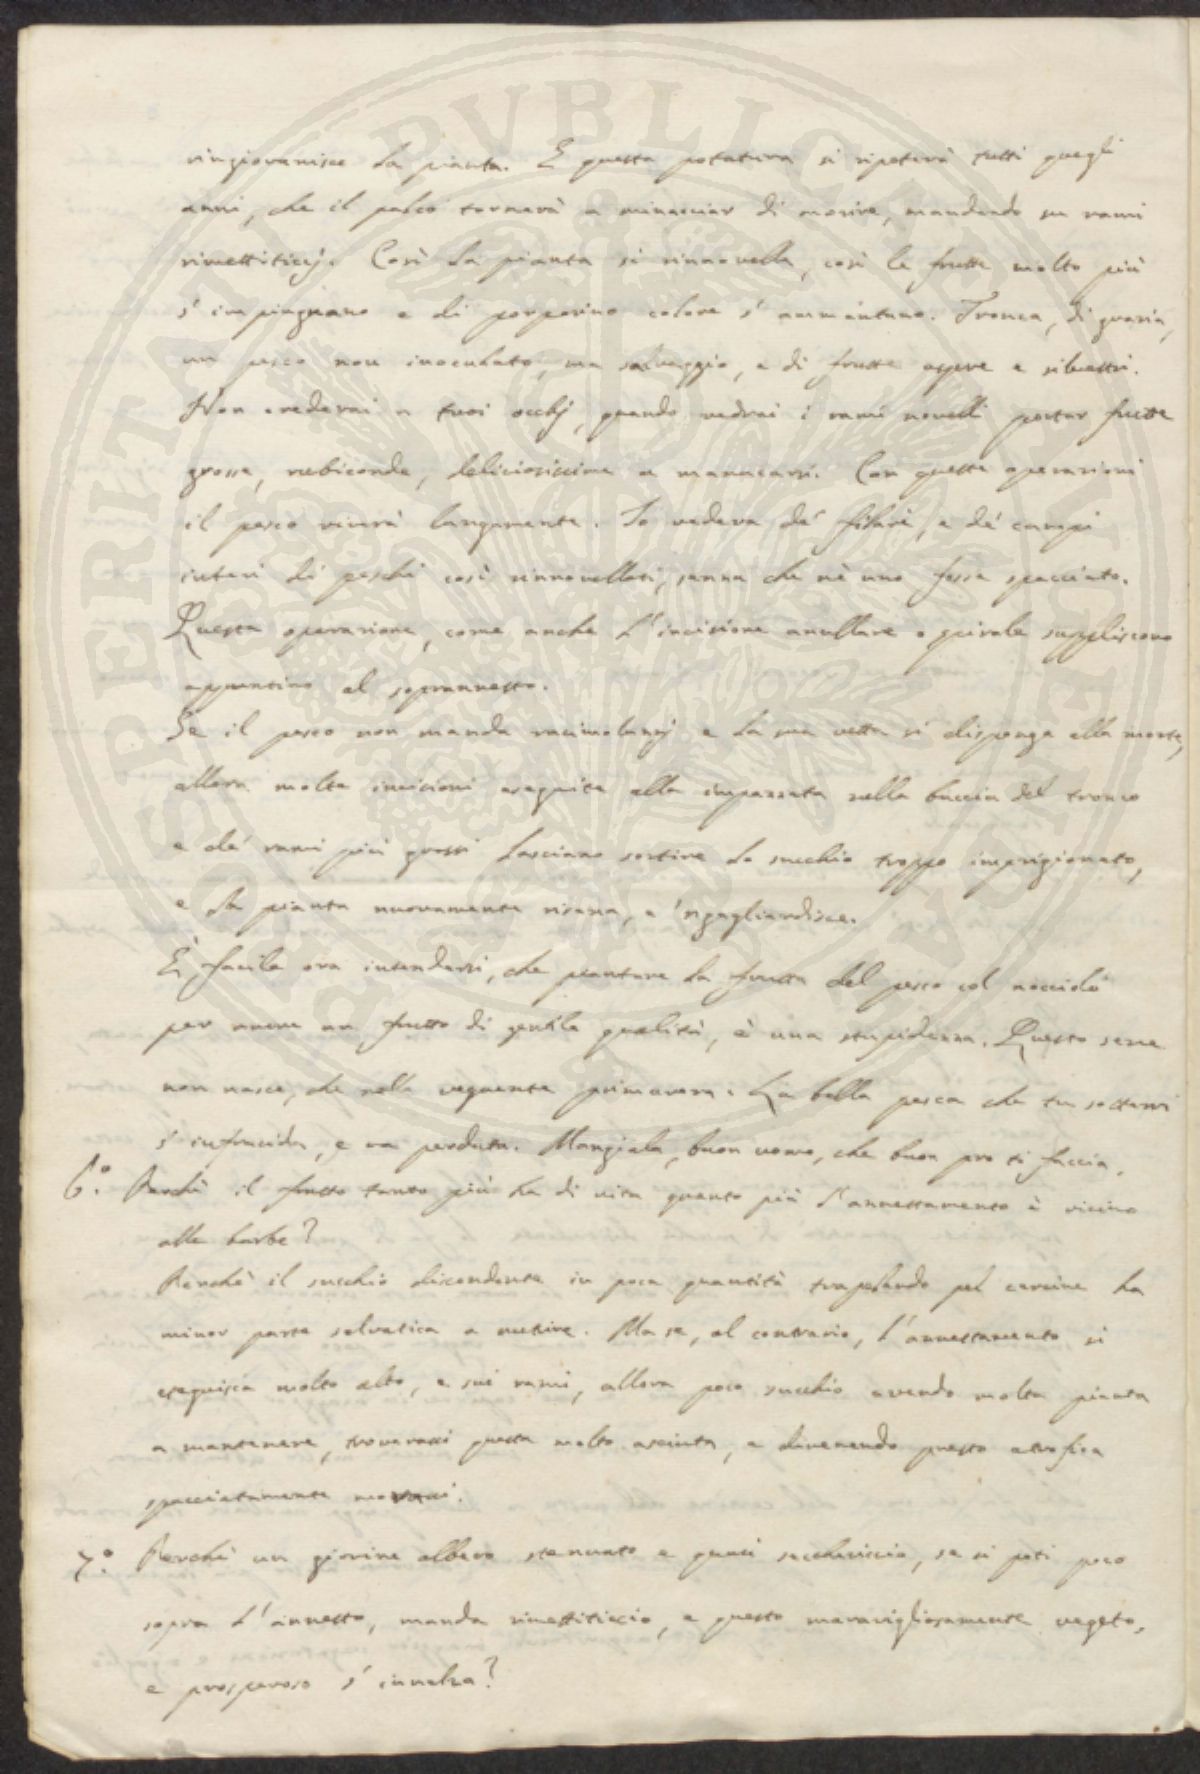 ringiovanisce la pianta. E questa potatura si ripeterà tutti quegli
anni, che il palco tornerà a minacciar di morire, mandando su rami
rimettiticcj. Così la pianta si rinnovella, così le frutte molto più
s'impinguano e di porporino colore s'ammantano. Tronca, di grazia,
un pesco non inoculato, ma selvaggio, e di frutte aspre e silvestri.
Non crederai a tuoi occhj, quando vedrai i rami novelli portar frutte
grosse, rubiconde, deliciosissime a manucarsi. Con queste operazioni
il pesco vivrà lungamente. Io vedeva de' filari, e de' campi
interi di peschi così rinnovellati, senza che nè uno fosse spacciato.
Questa operazione, come anche l'incisione anullare o spirale suppliscono
appuntino al soprannesto.
Se il pesco non manda e la sua vetta si disponga alla morte,
allora molte incisioni eseguite alla impazzata nella buccia del tronco
e de' rami più grossi lasciano sortire lo succhio troppo imprigionato,
e la pianta nuovamente risana, e ringagliardisce.
È facile ora intendersi, che piantare la frutta del pesco col nocciolo
per avere un frutto di gentile qualità, è una stupidezza. Questo seme
non nasce, che nella vegnente primavera. La bella pesca che tu sotterri
s'infracida, e va perduta. Mangiala, buon uomo, che buon pro ti faccia.
6.° Perchè il frutto tanto più ha di vita quanto più l'annestamento è vicino
alle barbe?
Perchè il succhio discendente in poca quantità trapelando pel cercine ha
minor parte selvatica a nutrire. Ma se, al contrario, l'annestamento si
eseguisca molto alto, e sui rami, allora poco succhio avendo molta pianta
a mantenere, trovarassi questa molto asciutta, e divenendo presto atrofica
spacciatamente
7.° Perchè un giovine albero stenuato e quasi seccherìccio, se si poti poco
sopra l'annesto, manda rimettiticcio, e questo maravigliosamente vegeto,
e prosperoso s'innalza?